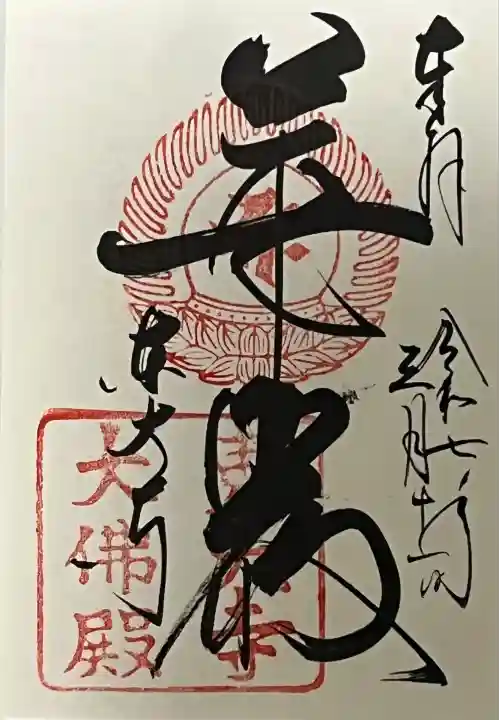 奉拝
令和七年
三月
華厳
東大寺
東大寺
大佛殿